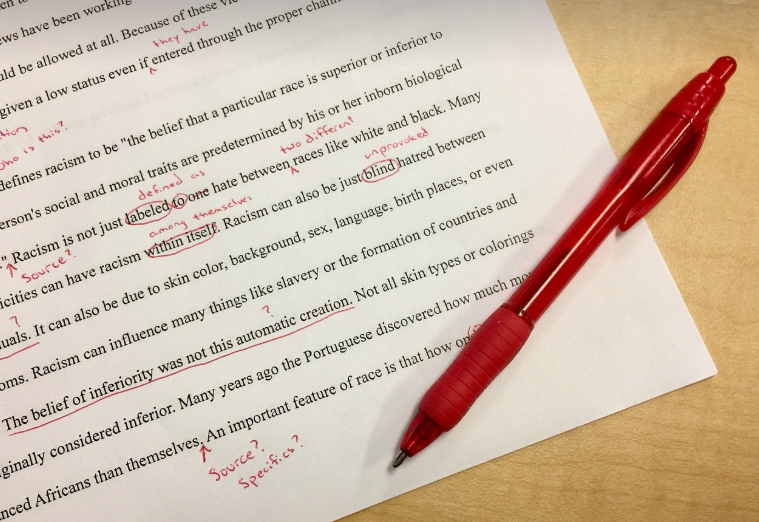 ews have been working
uld be allowed at all. Because of these
they have
given a low status even if entered through the proper
defines racism to be "the belief that a particular race is superior or inferior to
who is this?
erson's social and moral traits are predetermined by his or her inborn biological
defined as two different
" Racism is not just labeled to one hate between races like white and black. Many
Source? among themselves unprovoked
icities can have racism within itself. Racism can also be just blind hatred between
?
uals. It can also be due to skin color, background, sex, language, birth places, or even
oms. Racism can influence many things like slavery or the formation of countries and
?
The belief of inferiority was not this automatic creation. Not all skin types or colorings
ginally considered inferior. Many years ago the Portuguese discovered how much
nced Africans than themselves. An important feature of race is that how
Source?
Specifics?